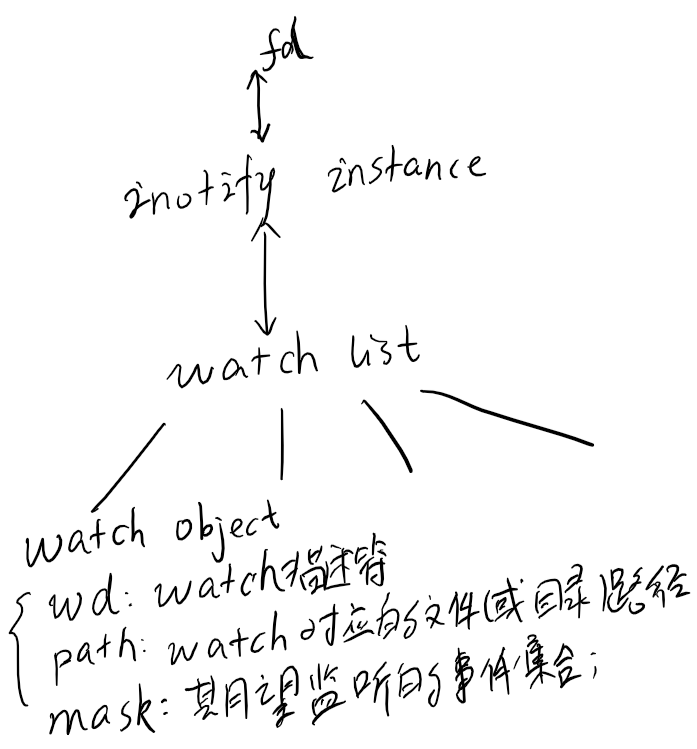 fd
inotify instance
watch list
watch object
wd: watch描述符
path: watch对应的文件(或目录)路径
mask: 期望监听的事件集合;